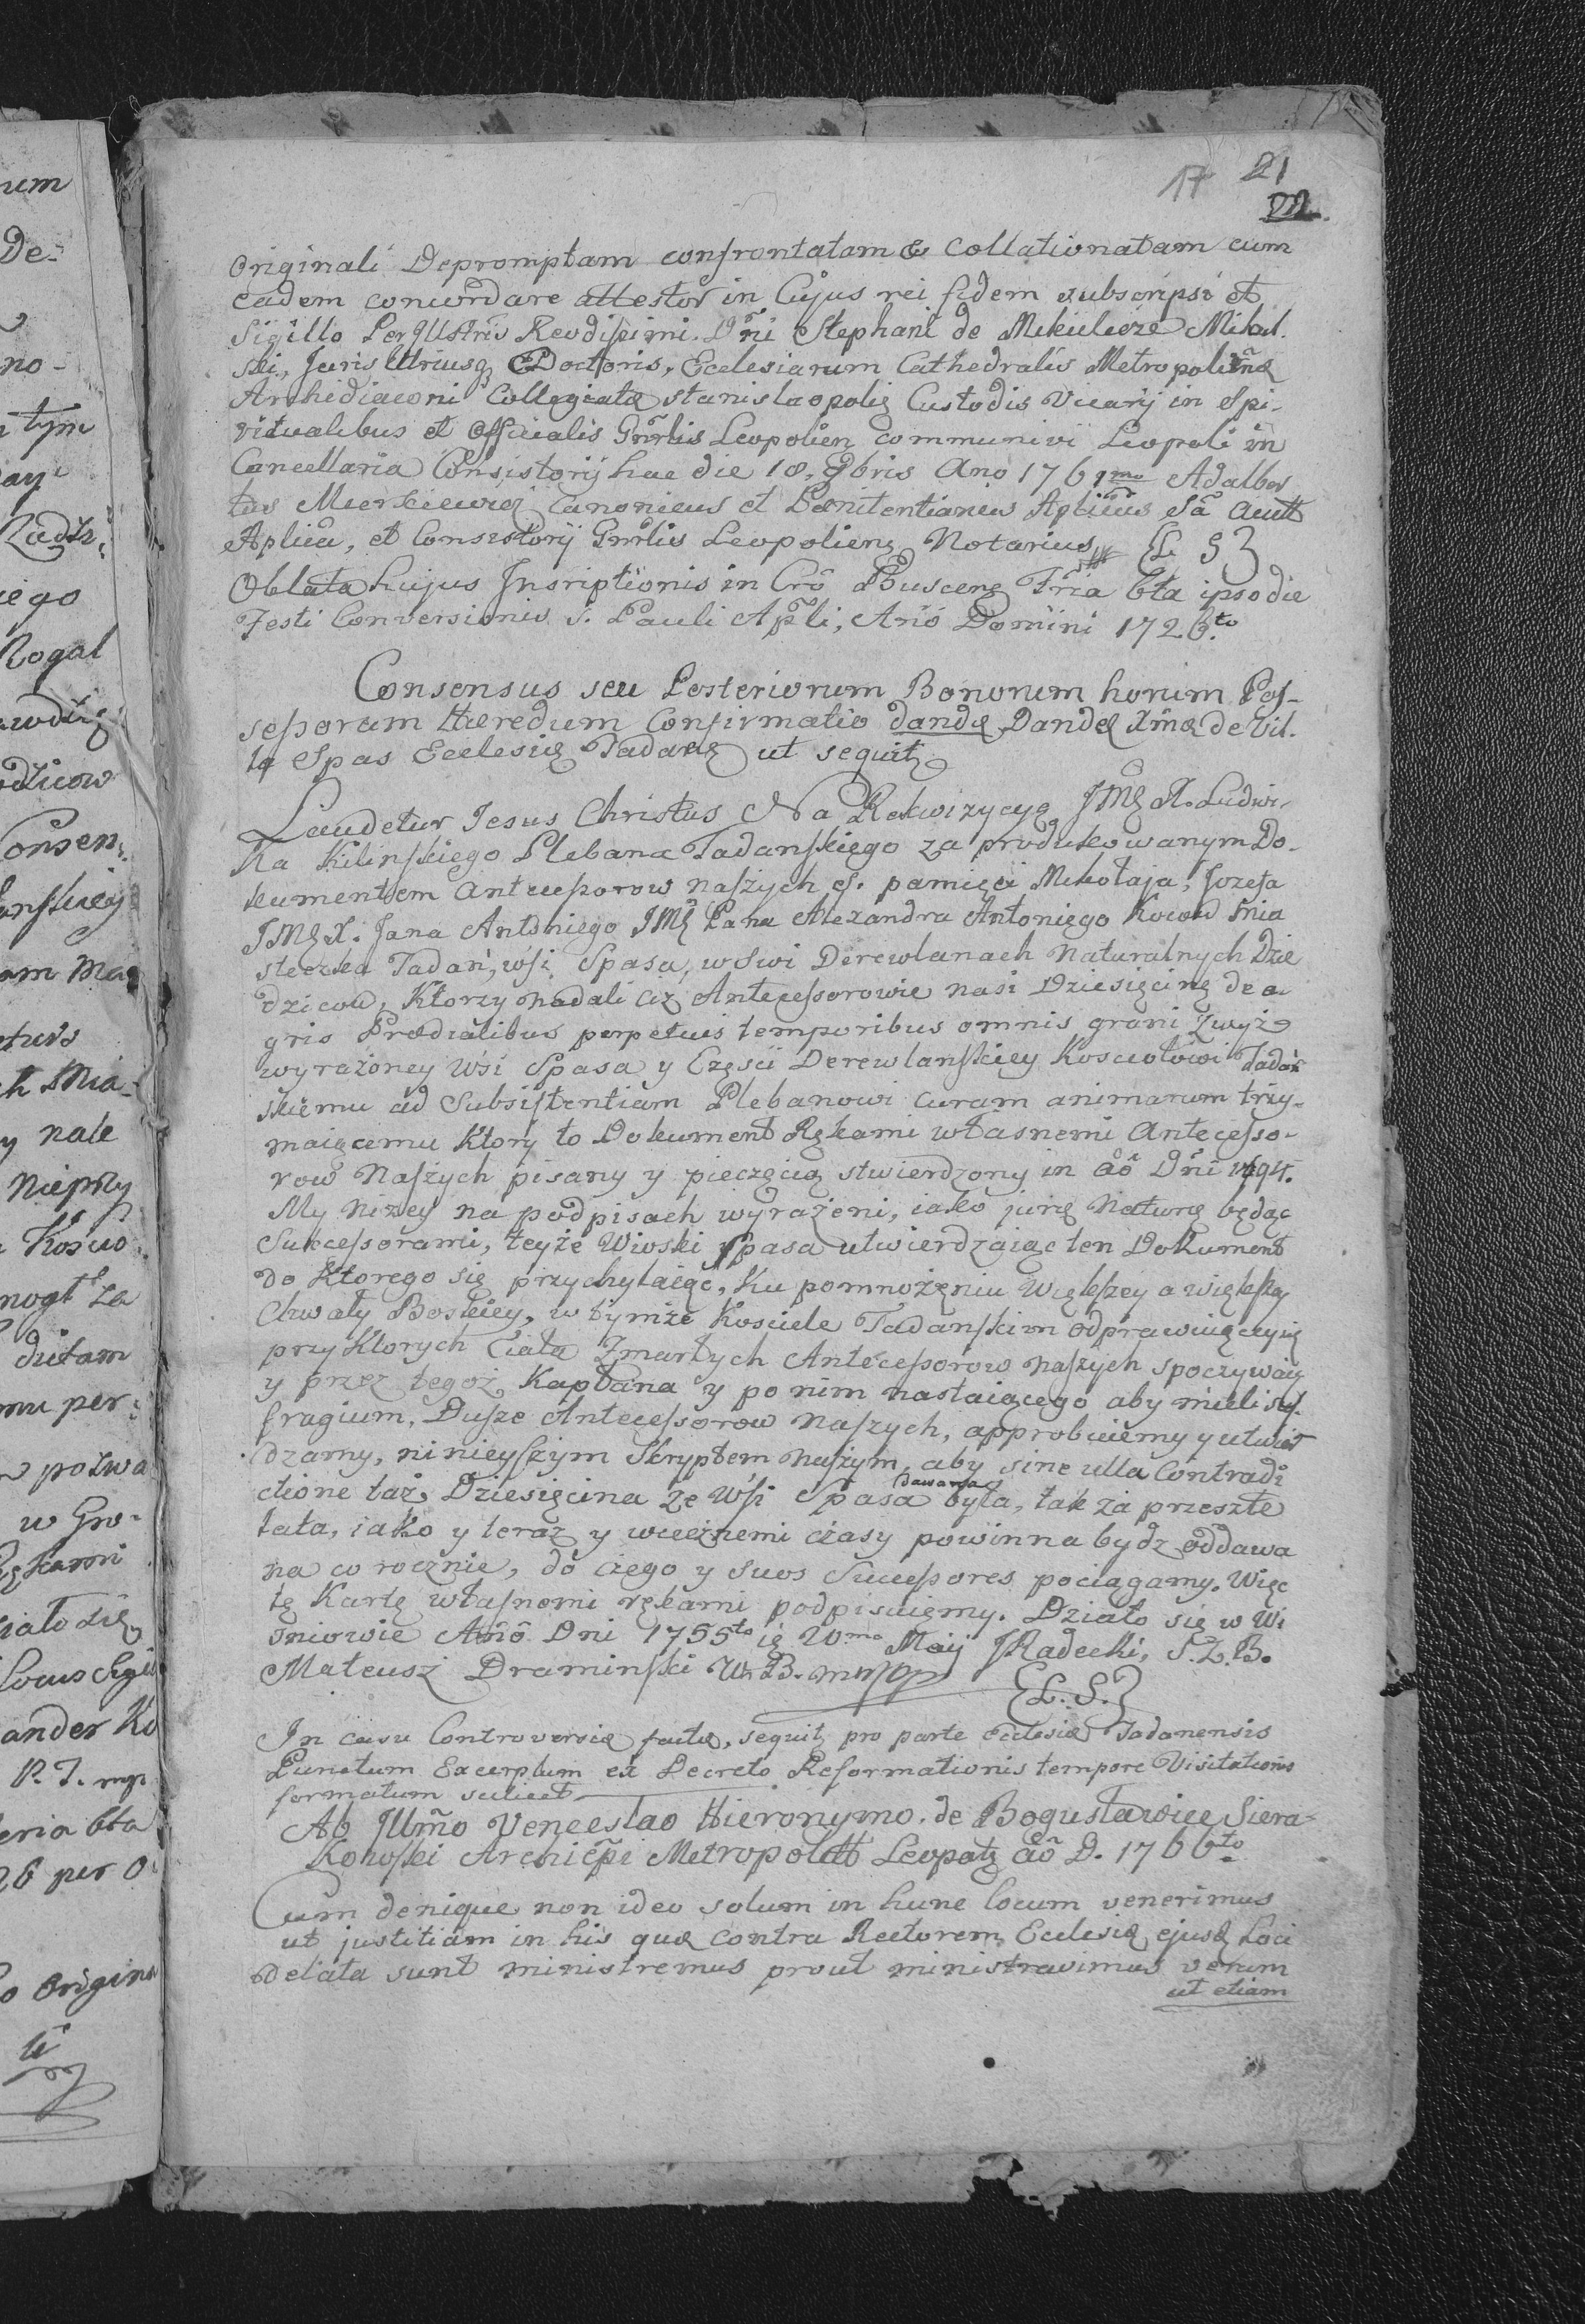 17 21
22.
Originali Depromptam confrontatam & Collationatam cum
eadem concordare attestor in Cujus rei fidem subscripsi et
Sigillo PerIllustris Revdissimi Dñi Stephani de Mikulicze Mikul.
ski, Juris Utriusq Doctoris, Ecclesiarum Cathedralis Metropolitñæ
Archidiaconi Collegiatæ Stanislaopolis Custodis Vicarij in Spi-
ritualibus et Officialis Gñrlis Leopolien communivi Leopoli in
Cancellaria Consistorij hac die 18. Ano 1761mo Adalber
tus canonicus et Pænitentiarius Aplicus Sâ autt
Aplica, et Consistorij Gnrlis Leopoliens Notarius {L S}
Oblata hujus Inscriptionis in Crõ Buscens Fria bta ipso die
Festi Conversionis S. Pauli Apli, Anõ Domini 1726to
Consensus seu Posteriorum Bonorum horum Pos-
sessorum Hæredum Confirmatio dandæ Dandæ Xmæ de Vil.
la Spas Ecclesiæ Tadane ut sequitz
Laudetur Jesus Christus Na Rekwizycyę JMę X. Ludwi-
ka Kilinskiego Plebana Tadanskiego za produkowanym Do-
kumentem Antecessorow naszych S. pamięci Mikołaja, Jozefa
JMę X. Jana Antoniego JMę Pana Alexandra Antoniego Kocow Mia
steczka Tadań, wsi Spasa, w Swi Derewlanach Naturalnych Dzie
dzicow, Ktorzy nadali ciz Antecessorowie nasi Dziesięcinę de a-
gris Prædialibus perpetuis temporibus omnis grani zwyż
wyrażoney Wsi Spasa y Części Derewlanskiey Kosciołowi Tadań
skiemu ad Subsistentiam Plebanowi curam animarum trzy-
maiącemu Ktory to Dokument Rękami własnemi Antecesso-
row Naszych pisany y pieczęcią stwierdzony in aõ Dñi 1694.
My niżey na podpisach wyrażeni, iako jurę Naturę będąc
Sukcessorami, teyże Wioski Spasa utwierdzaiąc ten Dokument
do Ktorego się przychylaiąc, ku pomnożęniu Większey a większey
Chwały Boskiey, w tymże Kosciele Tadanskim odprawuięceyię
przy Ktorych Ciała Zmarłych Antecessorow naszych spoczywaią
y przez tegoż Kapłana y po nim nastaiącego aby mieli suf.
fragium, Dusze Antecessorow Naszych, approbuiemy y utwier
dzamy, ninieyszym Skryptem naszym, aby sine ulla Contradi
ctione taż Dziesięcina ze Wsi Spasa dawana była, tak za przeszłe
lata, iako y teraz y wiecznemi czasy powinna bydz oddawa
na co rocznie, do czego y suos Successores pociągamy. Więc
tę Kartę własnemi rękami podpisuięmy. Działo się w Wi
sniowie Anõ Dni 1755to Maij JRadecki, S. Z. B.
Mateusz Draminski W. B. mp {L. S.}
In casu Controversiæ factæ, sequitz pro parte Ecclesiæ Tadanensis
Punctum Excerptum ex Decreto Reformationis tempore Visitationis
formatum scilicet
Ab Illmõ Venceslao Hieronymo de Bogusławice Siera-
Kowski Archiepi Metropolitt Leopolz aõ D. 1766to
Cum denique non ideo solum in hunc locum venerimus
ut justitiam in his quæ contra Rectorem Ecclesiæ ejusd Loci
delata sunt ministremus prout ministravimus verum
ut etiam